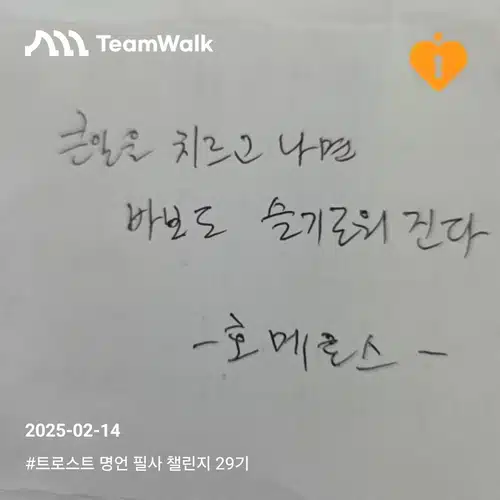 TeamWalk
큰일을 치르고 나면
바보도 슬기로워 진다
- 호메로스 -
2025-02-14
#트로스트 명언 필사 챌린지 29기